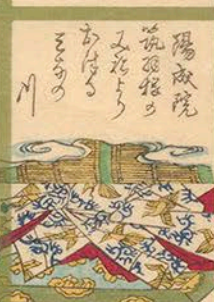 陽成院
筑波根の
みねより
おつる
みなの
川